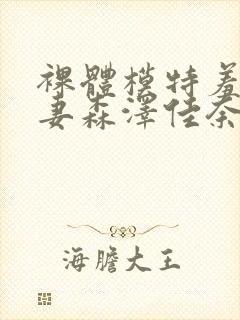 裸體模特羞
妻森澤佳奈
海膽大王